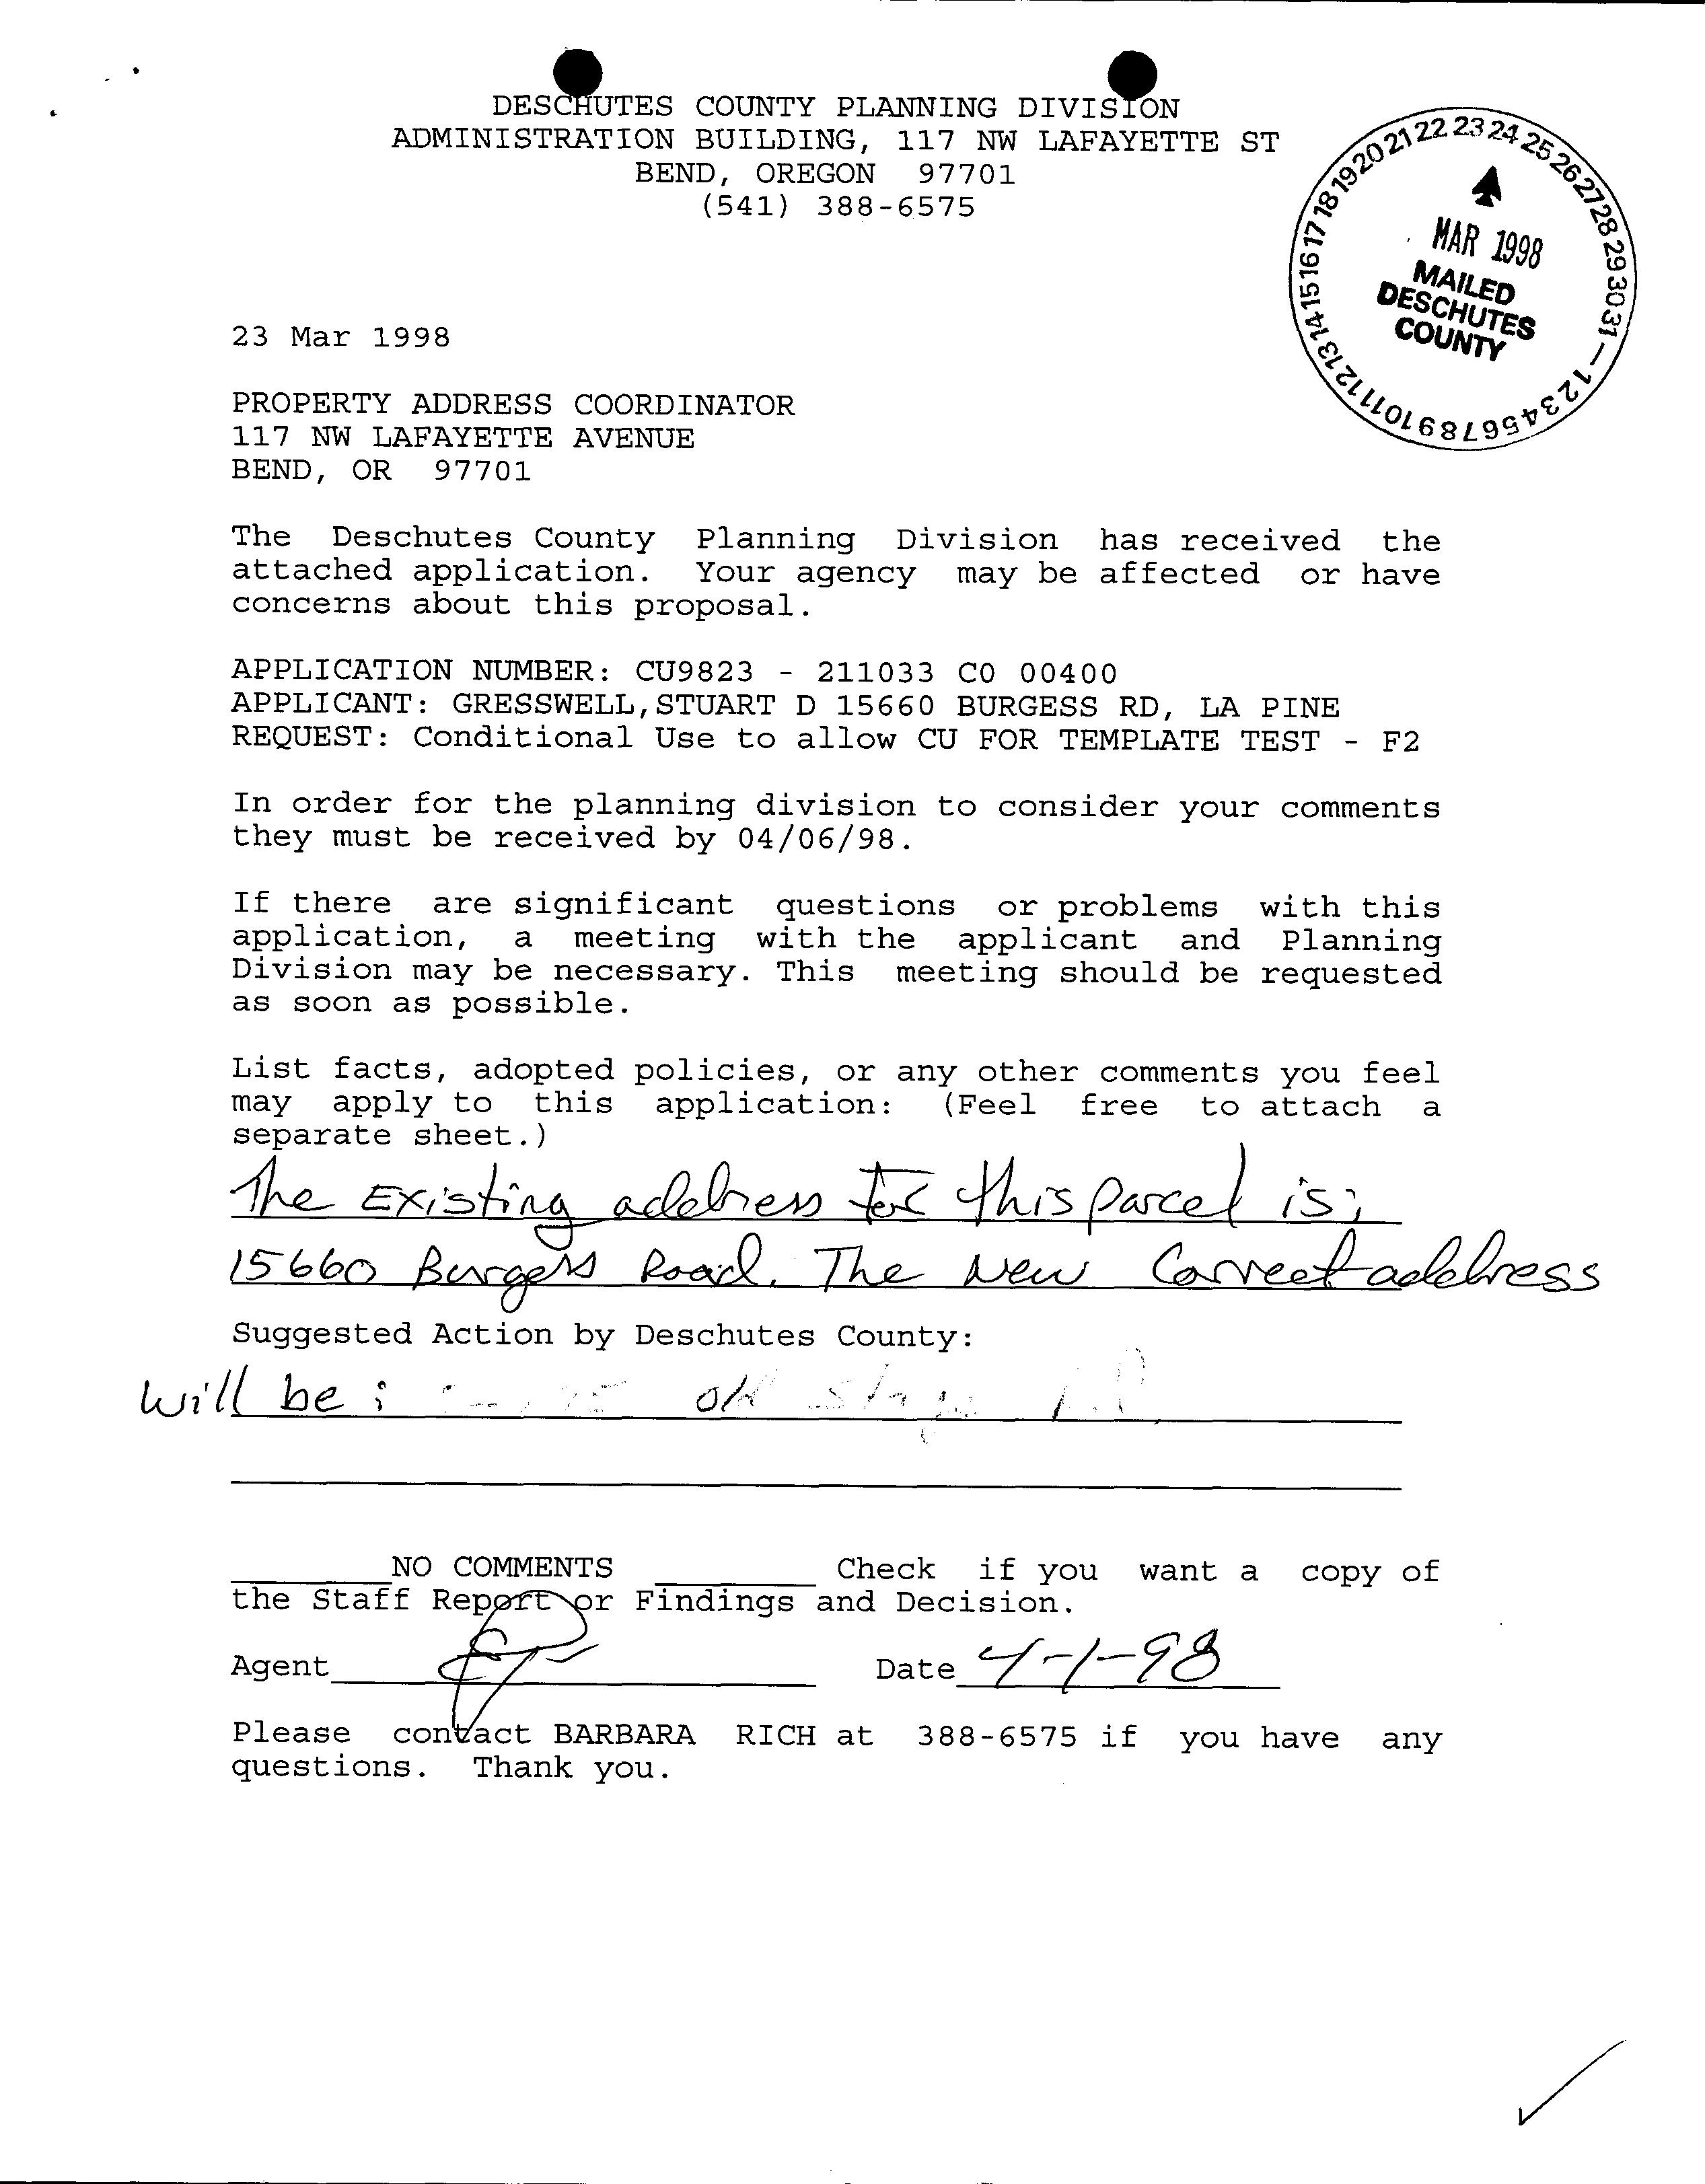 DESCHUTES COUNTY PLANNING DIVISION
ADMINISTRATION BUILDING, 117 NW LAFAYETTE ST
BEND, OREGON 97701
(541) 388-6575
1 2 3 4 5 6 7 8 9 10 11 12 13 14 15 16 17 18 19 20 21 22 23 24 25 26 27 28 29 30 31 —
MAR 1998
MAILED
DESCHUTES
COUNTY
23 Mar 1998
PROPERTY ADDRESS COORDINATOR
117 NW LAFAYETTE AVENUE
BEND, OR 97701
The Deschutes County Planning Division has received the
attached application. Your agency may be affected or have
concerns about this proposal.
APPLICATION NUMBER: CU9823 - 211033 C0 00400
APPLICANT: GRESSWELL,STUART D 15660 BURGESS RD, LA PINE
REQUEST: Conditional Use to allow CU FOR TEMPLATE TEST - F2
In order for the planning division to consider your comments
they must be received by 04/06/98.
If there are significant questions or problems with this
application, a meeting with the applicant and Planning
Division may be necessary. This meeting should be requested
as soon as possible.
List facts, adopted policies, or any other comments you feel
may apply to this application: (Feel free to attach a
separate sheet.)
The Existing address for this parcel is;
15660 Burgess Road. The New Correct address
Suggested Action by Deschutes County:
will be : old
NO COMMENTS Check if you want a copy of
the Staff Report or Findings and Decision.
Agent Date 4-1-98
Please contact BARBARA RICH at 388-6575 if you have any
questions. Thank you.